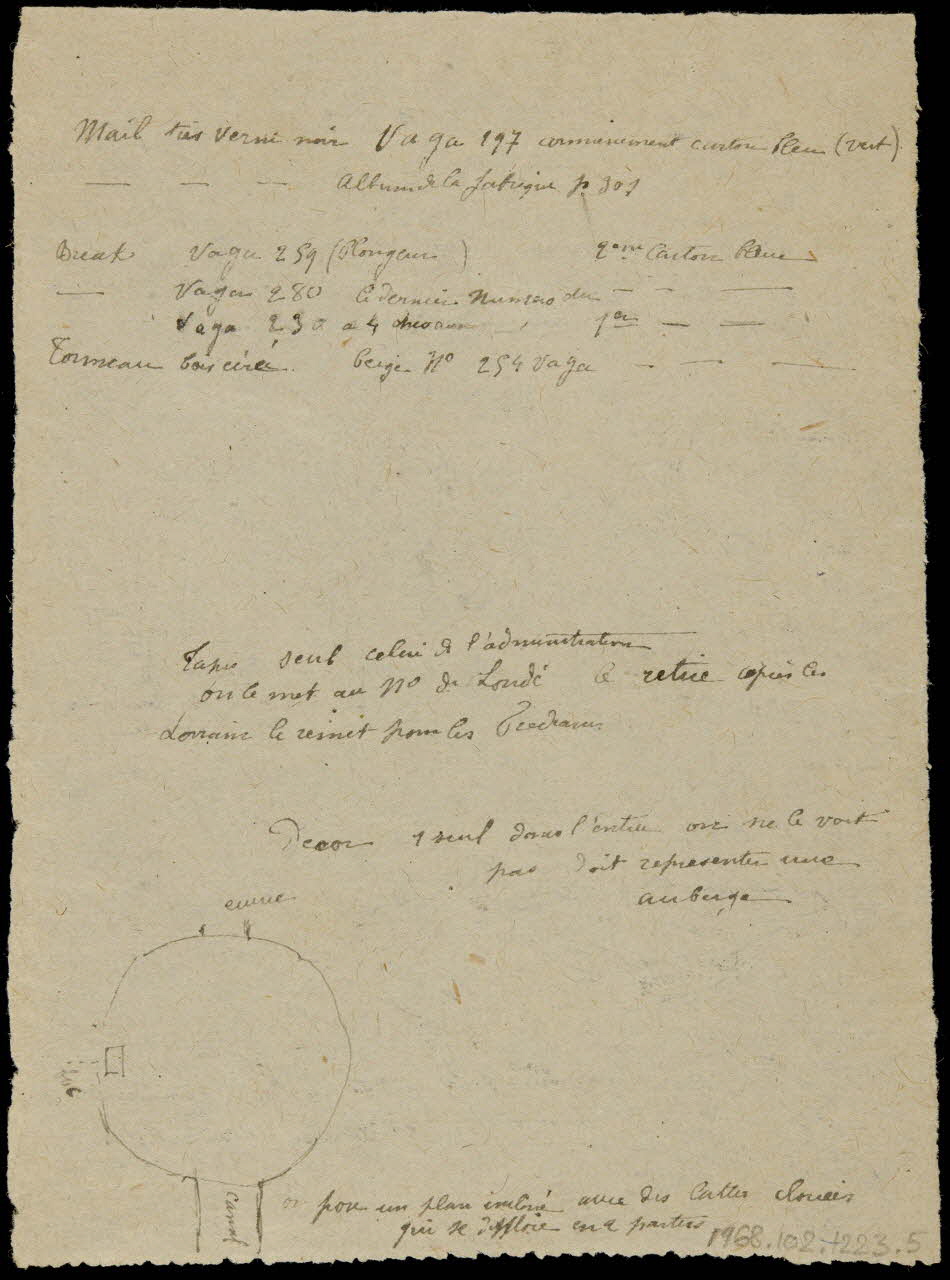 Mail très verni noir Vaga 197 carton bleu (vert)
— — — Album de la fabrique p 301
Break Vaga 259 (Plongeur) 2eme Carton bleu
— Vaga 280 le dernier numero du — —
Vaga 230 a 4 chevaux 1er — —
Tonneau bois ciré beige No 254 Vaga — — —
Tapis seul celui de l'administration
on le met au No de Loudé le retire après les
Lorrain le remet pour les
Decor 1 seul dans l'entrée on ne le voit
pas doit representer une
auberge
entrée
Canal
on pose un plan incliné avec des lattes clouées
qui se en 2 parties
1968.102.4223.5